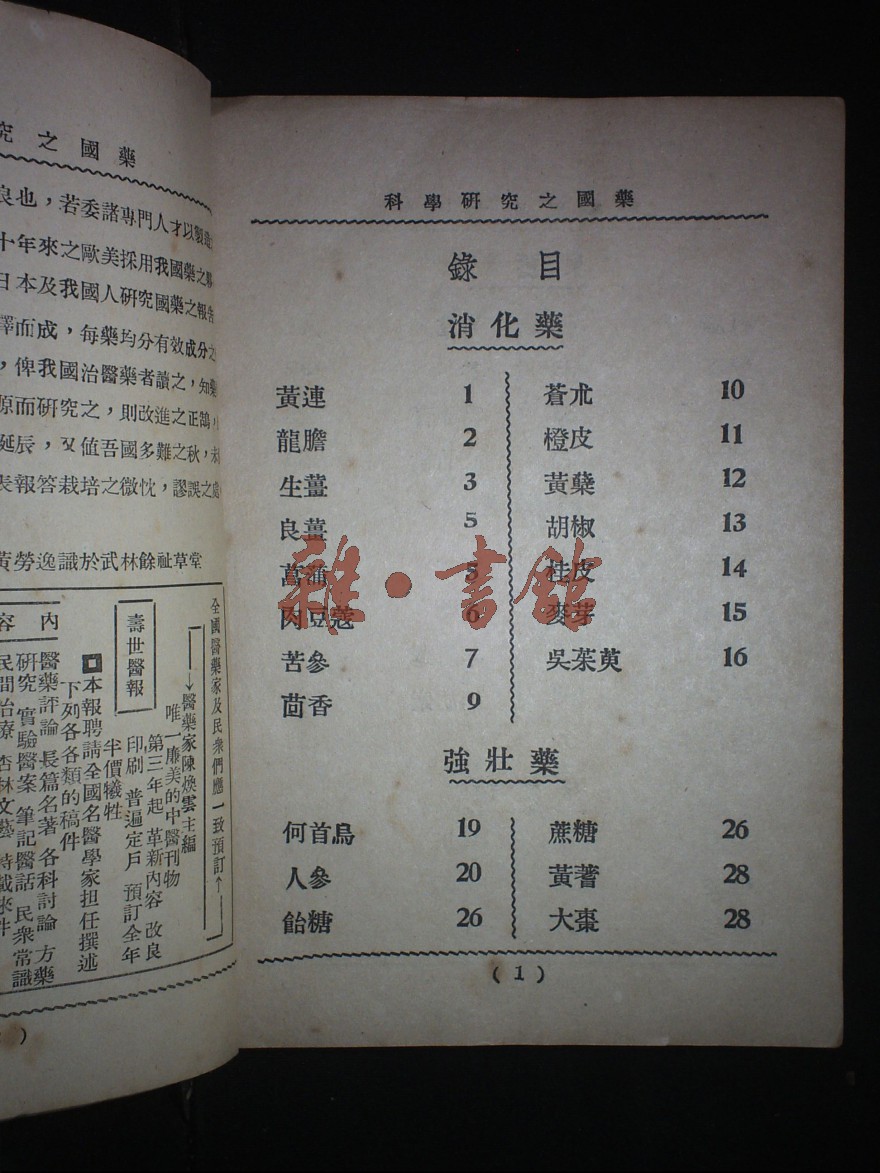 究之國藥
良也，若委諸專門人才以製造
十年來之歐美採用我國藥之
日本及我國人研究國藥之報告
譯而成，每藥均分有效成分之
，俾我國治醫藥者讀之，知藥
原而研究之，則改進之正鵠，
誕辰，又値吾國多難之秋，
表報答栽培之微忱，謬誤之處
黃勞逸識於武林餘祉草堂
全國醫藥家及民衆們應一致預訂↑
→醫藥家陳煥雲主編
唯一廉美的中醫刊物
第三年起 革新內容 改良
印刷 普遍定戶 預訂全年
半價犧牲
壽世醫報
本報聘請全國名醫學家担任撰述
下列各各類的稿件
內容
醫藥評論 長篇名著 各科討論 方藥
研究 實驗醫案 筆記醫話 民衆常識
民間治療 杏林文藝 特載來件
科學研究之國藥
錄目
消化藥
黃連 1
龍膽 2
生薑 3
良薑 5
菖蒲 5
肉豆蔻 6
苦參 7
茴香 9
蒼朮 10
橙皮 11
黃蘗 12
胡椒 13
桂皮 14
麥芽 15
吳茱萸 16
強壯藥
何首烏 19
人參 20
飴糖 26
蔗糖 26
黃蓍 28
大棗 28
(1)
雜·書館